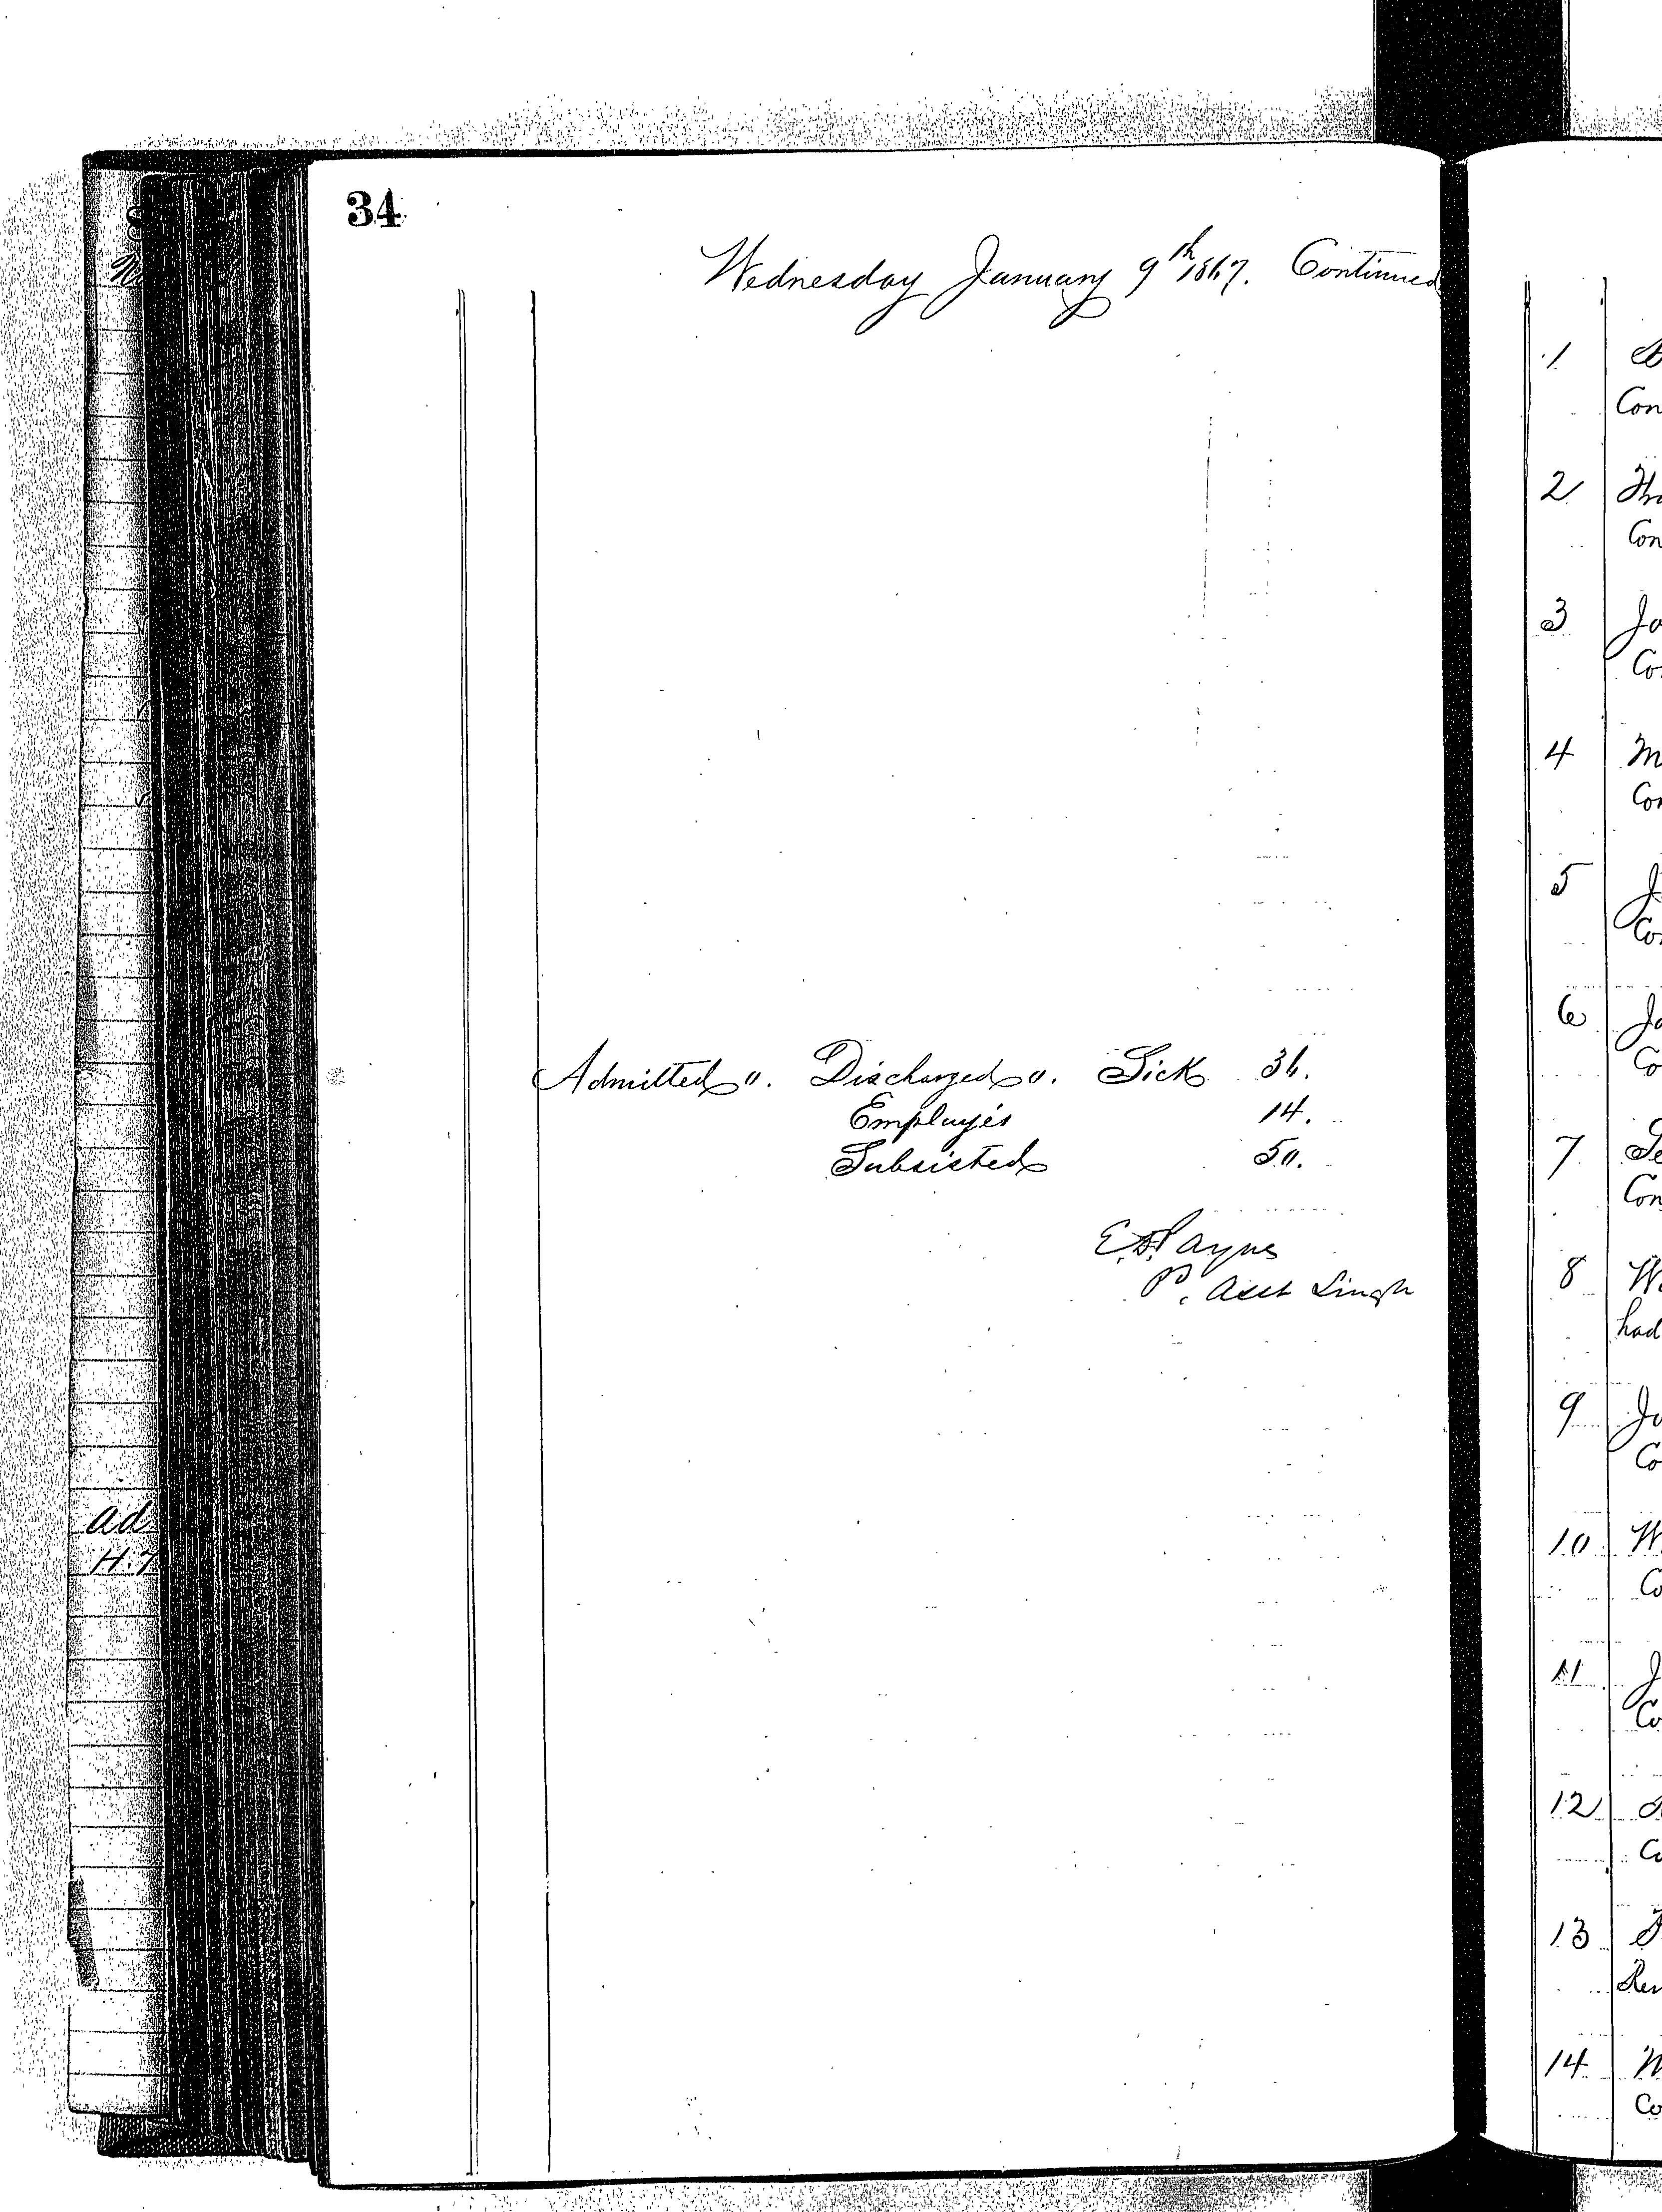 34
Wednesday January 9th 1867. Continued
Admitted 0. Discharged 0. Sick 36.
Employés 14.
Subsisted 50.
E.D. Payne
P. Asst Surgn
1
Con
2
Con
3 Jo
Co
4 M
Con
5 J
Co
6 Ja
Co
7 Ge
Con
8 W
had
9 Jo
Co
10 W
Co
11 J
Co
12
Co
13
Rem
14 M
Co
Ad
H.7